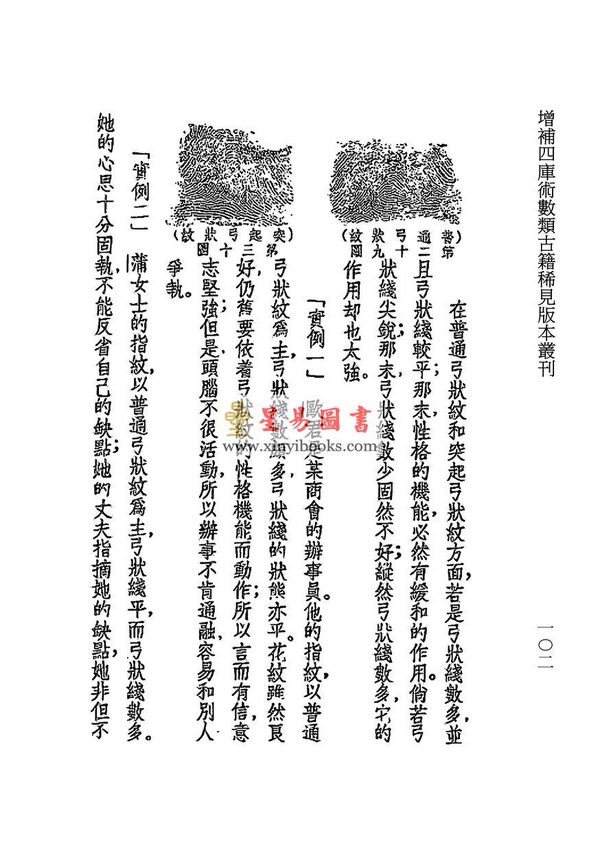 增補四庫術數類古籍稀見版本叢刊
一〇二
在普通弓狀紋和突起弓狀紋方面，若是弓狀綫數多，並
且弓狀綫較平；那末，性格的機能，必然有緩和的作用。倘若弓
狀綫尖銳，那末，弓狀綫數少固然不好；縱然弓狀綫數多，它的
作用却也太強。
第二十九圖
(普通弓狀紋)
「實例一」 歐君是某商會的辦事員。他的指紋，以普通
弓狀紋爲主，弓狀綫數頗多，弓狀綫的狀態亦平。花紋雖然良
好，仍舊要依着弓狀紋的性格機能而動作；所以言而有信，意
志堅強；但是頭腦不很活動，所以辦事不肯通融，容易和別人
爭執。
第三十圖
(突起弓狀紋)
「實例二」 蒲女士的指紋，以普通弓狀紋爲主，弓狀綫平，而弓狀綫數多。
她的心思十分固執，不能反省自己的缺點；她的丈夫指摘她的缺點，她非但不
星易圖書
www.xinyibooks.com